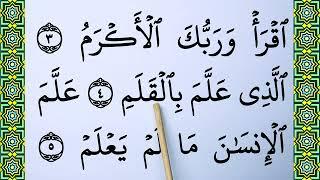 ٱقۡرَأۡ وَرَبُّكَ ٱلۡأَكۡرَمُ ٣
ٱلَّذِى عَلَّمَ بِٱلۡقَلَمِ ٤ عَلَّمَ
ٱلۡإِنسَٰنَ مَا لَمۡ يَعۡلَمۡ ٥